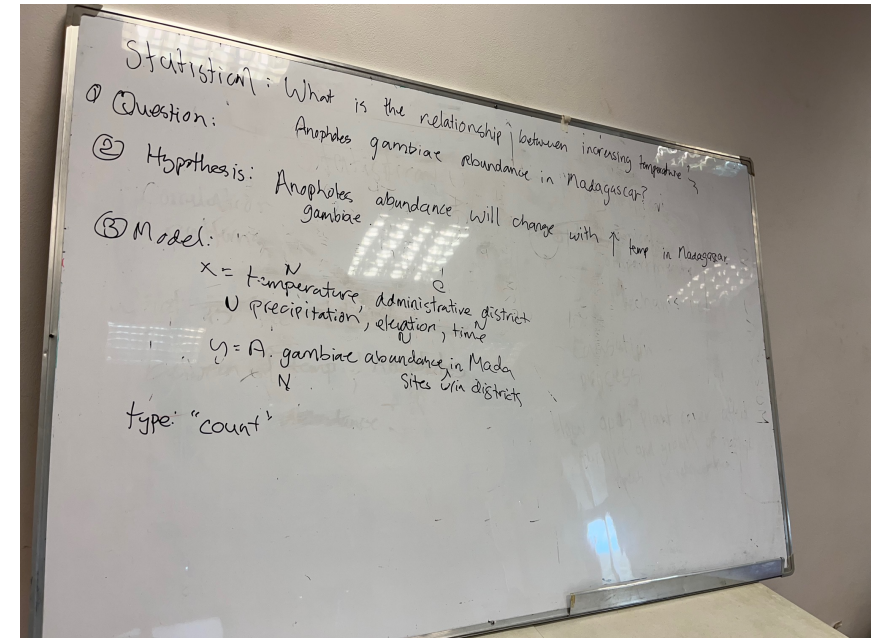 Statistical: What is the relationship between increasing temperature &
① Question: Anopholes gambiae abundance in Madagascar?
② Hypothesis: Anopholes gambiae abundance will change with ↑ temp in Madagascar
③ Model:
N C
x = temperature, administrative district
N precipitation, elevation, time
N N
y = A. gambiae abundance in Mada
N Sites w/in districts
type: "count"